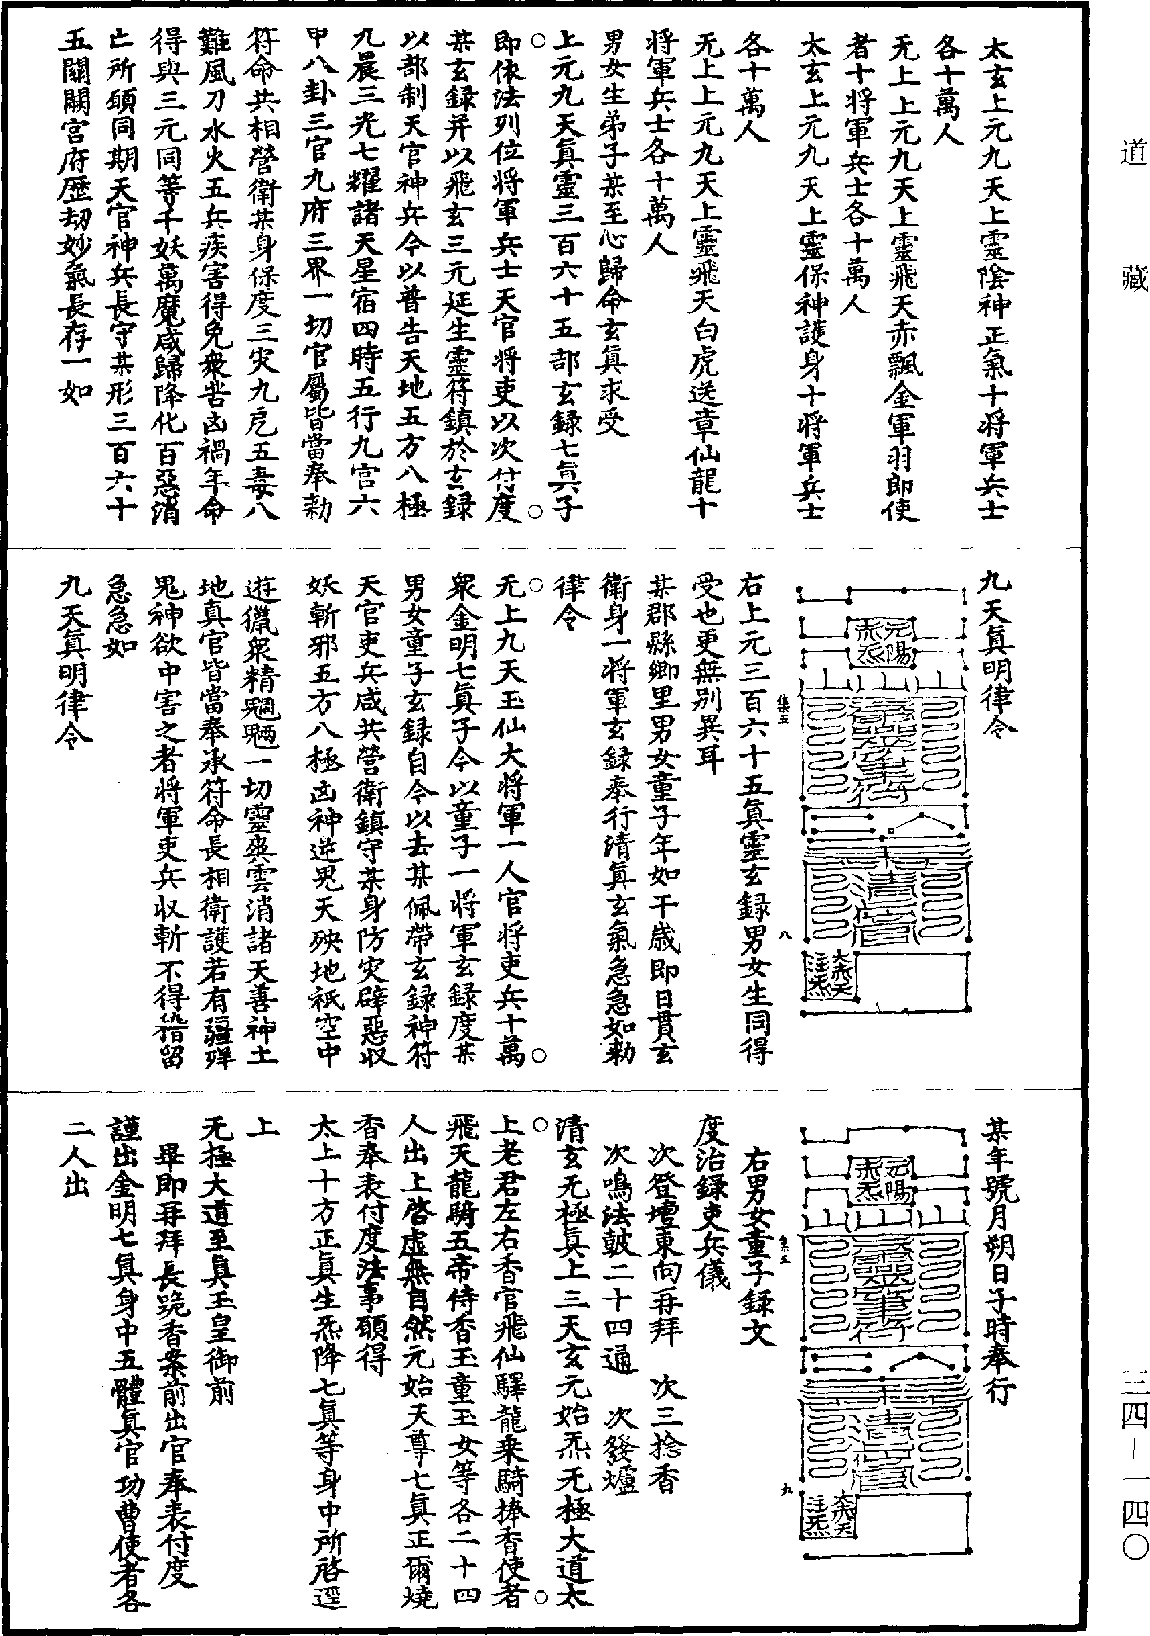 道藏
太玄上元九天上靈陰神正氣十將軍兵士
各十萬人
无上上元九天上靈飛天赤飄金軍羽郎使
者十將軍兵士各十萬人
太玄上元九天上靈保神護身十將軍兵士
各十萬人
无上上元九天上靈飛天白虎送章仙龍十
將軍兵士各十萬人
男女生弟子某至心歸命玄真求受
上元九天真靈三百六十五部玄録七真子
即依法列位將軍兵士天官將吏以次付度
某玄録并以飛玄三元延生靈符鎮於玄録
以部制天官神兵今以普告天地五方八極
九晨三光七耀諸天星宿四時五行九宫六
甲八卦三官九府三界一切官屬皆當奉勑
符命共相營衛某身保度三灾九厄五毒八
難風刀水火五兵疾害得免衆苦凶禍年命
得與三元同等千妖萬魔咸歸降化百惡消
亡所願同期天官神兵長守某形三百六十
五關關宫府歷劫妙氣長存一如
九天真明律令
元陽
右上元三百六十五真靈玄録男女生同得
受也更無别異耳
某郡縣鄉里男女童子年如干歲即日貫玄
衛身一將軍玄録奉行清真玄氣急急如勑
律令
无上九天玉仙大將軍一人官將吏兵十萬
衆金明七真子今以童子一將軍玄録度某
男女童子玄録自今以去某佩帶玄録神符
天官吏兵咸共營衛鎮守某身防灾辟惡収
妖斬邪五方八極凶神逆鬼天殃地祇空中
遊獵衆精魍魎一切靈與雲消諸天善神土
地真官皆當奉承符命長相衛護若有彊殍
鬼神欲中害之者將軍吏兵収斬不得稽留
急急如
九天真明律令
某年號月朔日子時奉行
元陽
右男女童子録文
度治録吏兵儀
次登壇東向再拜　次三捻香
次鳴法皷二十四通　次發爐
清玄无極真上三天玄元始炁无極大道太
上老君左右香官飛仙驛龍乘騎捧香使者
飛天龍騎五帝侍香玉童玉女等各二十四
人出上啓虚無自然元始天尊七真正爾燒
香奉表付度法事願得
太上十方正真生炁降七真等身中所啓逕
上
无極大道至真玉皇御前
畢即再拜長跪香案前出官奉表付度
謹出金明七真身中五體真官功曹使者各
二人出
三四－一四〇